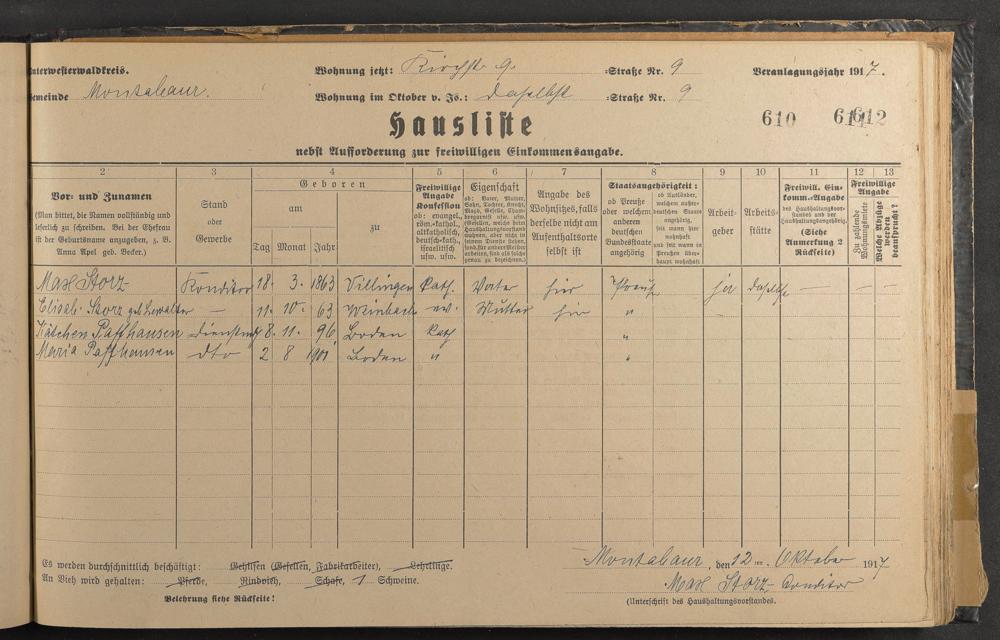 Unterwesterwaldkreis. Wohnung jetzt: Kirchstr 9 -Straße Nr. 9 Veranlagungsjahr 1917.
Gemeinde Montabaur. Wohnung im Oktober v. Js.: daselbst -Straße Nr. 9
Hausliste 610 612
nebst Aufforderung zur freiwilligen Einkommensangabe.
2 3 4 5 6 7 8 9 10 11 12 13
Vor- und Zunamen
(Man bittet, die Namen vollständig und
leserlich zu schreiben. Bei der Ehefrau
ist der Geburtsname anzugeben, z. B.
Anna Apel geb. Becker.)
Stand
oder
Gewerbe
Geboren
am
zu
Tag Monat Jahr
Freiwillige
Angabe
Konfession
ob: evangel.,
röm.-kathol.,
altkatholisch,
deutsch-kath.,
israelitisch
usw. usw.
Eigenschaft
ob: Vater, Mutter,
Sohn, Tochter, Knecht,
Magd, Geselle,
Angabe des
Wohnsitzes, falls
derselbe nicht am
Aufenthaltsorte
selbst ist
Staatsangehörigkeit:
ob Preuße
oder welchem
anderen
deutschen
Bundesstaate
angehörig
ob Ausländer,
welchem außer-
deutschen Staate
angehörig,
seit wann hier
wohnhaft
und seit wann in
Preußen über-
haupt wohnhaft
Arbeit-
geber
Arbeits-
stätte
Freiwill. Ein-
komm.-Angabe
des Haushaltungsvor-
standes und der
Haushaltungsangehörig.
(Siehe
Anmerkung 2
Rückseite)
Freiwillige
Angabe
Zu zahlende
Wohnungsmiete
Welche Abzüge
werden
beansprucht?
Max Storz Konditor 18. 3. 1863 Villingen Kath. Vater hier Preuß ja daselbst — — —
Elisab. Storz geb. — 11. 10. 63 Weinbach ev. Mutter hier "
Kätchen Paffhausen Dienstmg 8. 11. 96 Boden Kath "
Maria Paffhausen dto 2 8 1901 Boden " "
Es werden durchschnittlich beschäftigt: Gehilfen (Gesellen, Fabrikarbeiter), Lehrlinge.
An Vieh wird gehalten: Pferde, Rindvieh, Schafe, 1 Schweine.
Belehrung siehe Rückseite!
Montabaur, den 12ten Oktober 1917
Max Storz Conditor
(Unterschrift des Haushaltungsvorstandes.